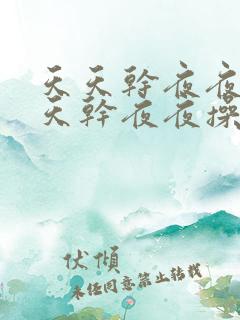 天天幹夜夜
天幹夜夜操
伏傾
未经同意禁止转载